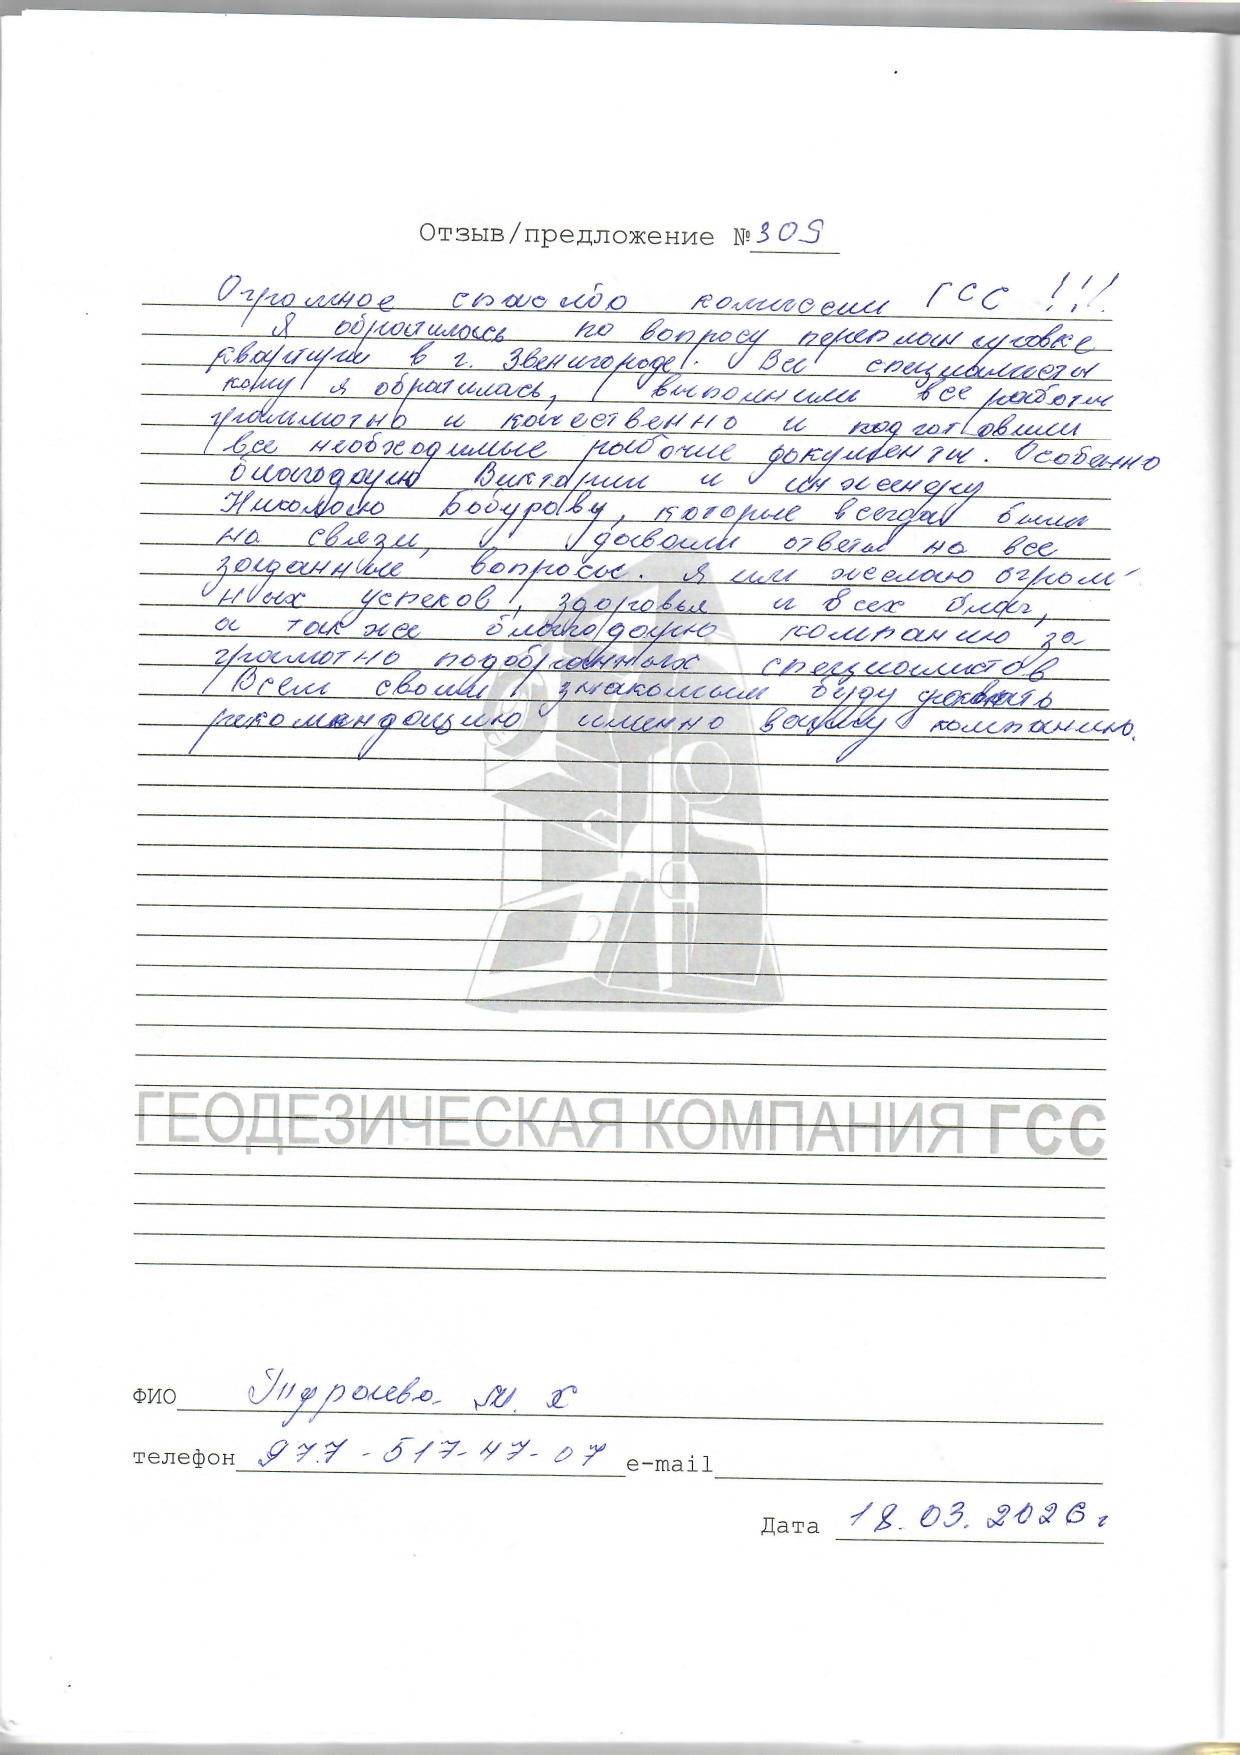 Отзыв/предложение № 309
Огромное спасибо компании ГСС !!!
Я обратилась по вопросу перепланировке
квартири в г. Звенигороде! Все специалисты
кому я обратилась, выполнили все работы
грамотно и качественно и подготовили
все необходимые рабочие документы. Особенно
благодарю Виктарии и инженеру
Николаю Бобурову, которые всегда были
на связи, давали ответы на все
заданные вопросы. Я им желаю огром-
ных успехов, здоровья и всех благ,
а так же благодарю компанию за
грамотно подобранных специалистов
Всем своим знакомым буду
рекомендацию именно вашу компанию.
ГЕОДЕЗИЧЕСКАЯ КОМПАНИЯ ГСС
ФИО М. Х
телефон 977-517-47-07 e-mail
Дата 18.03.2026 г